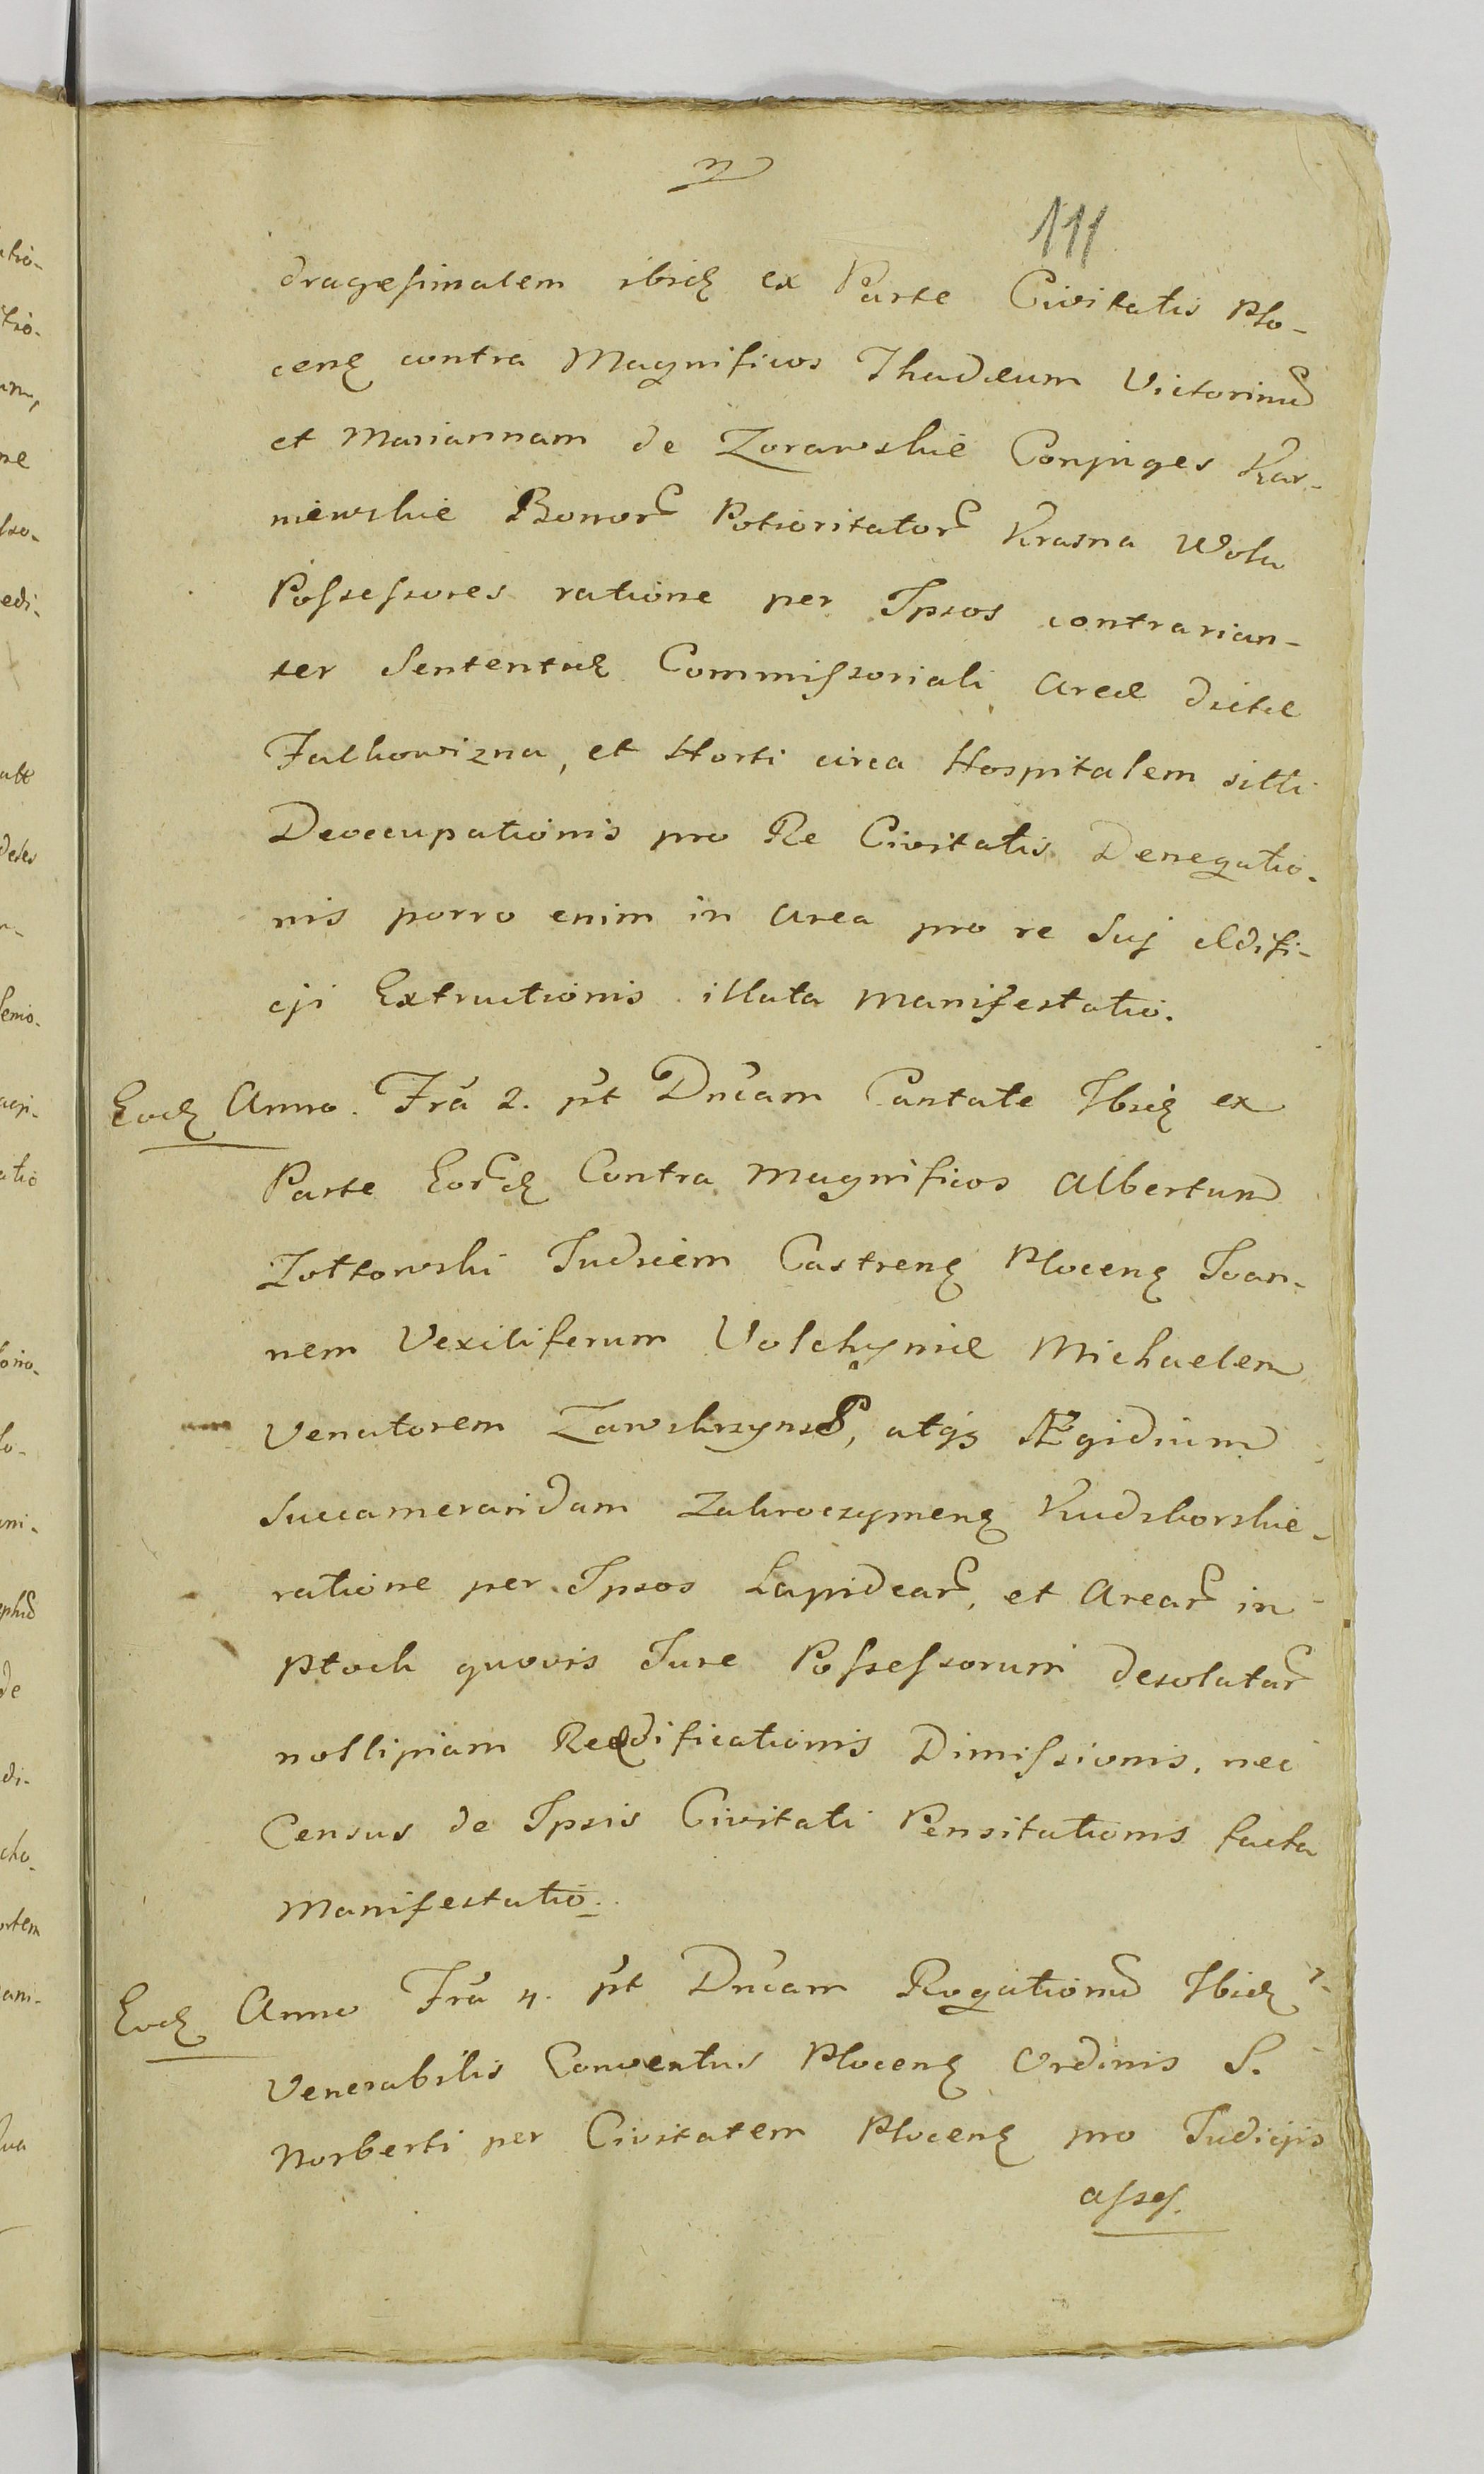 111
dragesimalem ibidꝫ ex Parte Civitatis Plo-
cenꝫ contra Magnificos Thadæum Victorinũ
et Mariannam de Zorawskie Conjuges Kar-
niewskie Bonorũ Potioritatorũ Krasna Wola
Possessores ratione per Ipsos contrarian-
ter Sententiæ Commissoriali Areæ dictæ
Falkowizna, et Horti circa Hospitalem sitti
Deoccupationis pro Re Civitatis Denegatio-
nis porro enim in Area pro re Suj Ædifi-
cji Extructionis illata Manifestatio.
Eodꝫ Anno. Frã 2. pt Dnĩcam Cantate Ibidꝫ ex
Parte Eorũdꝫ Contra Magnificos Albertum
Zottowski Judicem Castrenꝫ Plocenꝫ Joan-
nem Vexiliferum Volchyniæ Michaelem
Venatorem Zawskrzynsꝫ, atqꝫ Ægidium
Succameraridam Zakroczymenꝫ Kudsborskie-
ratione per Ipsos Lapidearũ, et Arearũ in
Plock quovis Jure Possessorum desolatarũ
nollipiam Reædificationis Dimissionis, nec
Census de Ipsis Civitati Pensitationis facta
Manifestatio.
Eodꝫ Anno Frã 4. pt Dnĩcam Rogationũ Ibidꝫ
Venerabilis Conventus Plocenꝫ Ordinis S.
Norberti per Civitatem Plocenꝫ pro Judicjis
asses.